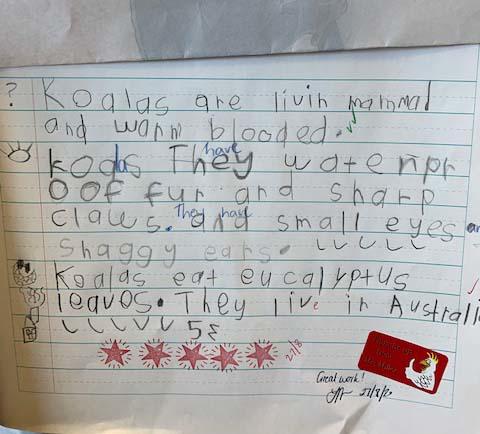 ?
Koalas are livin mammal
and warm blooded.
have
koalas They wate rnpr
oof fur and sharp
They have
claws. and small eyes an
shaggy ears.
Koalas eat eucalyptus
leaves. They live in Australi
5
21/8
Great work!